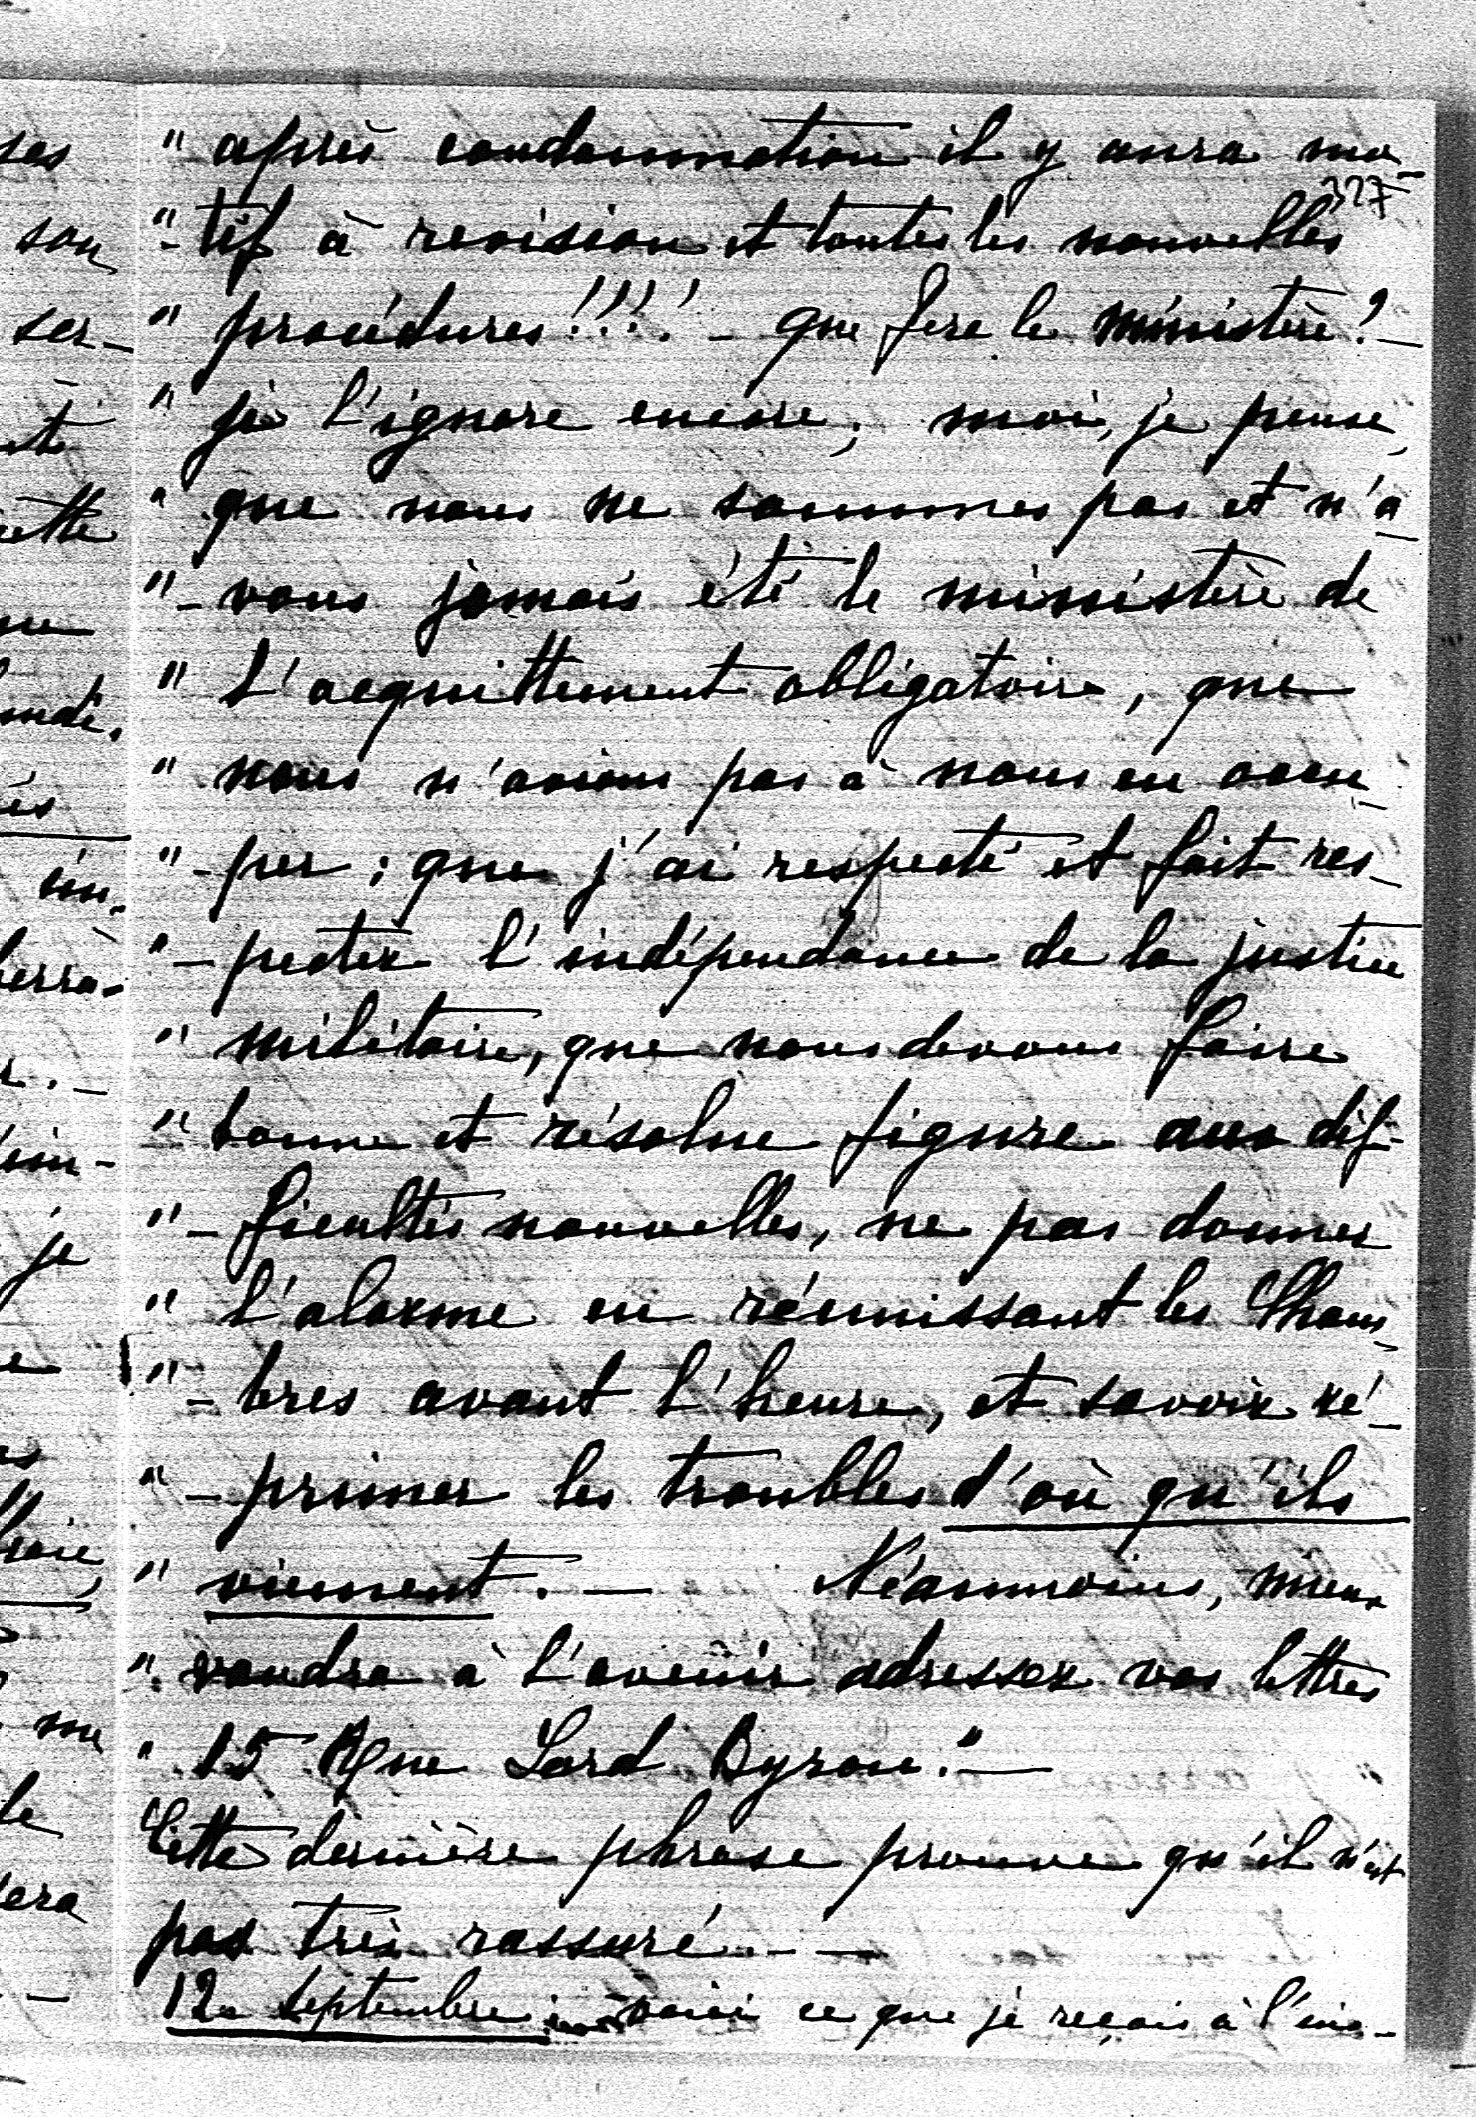 " après condamnation il y aura mo-
327
"-tif à revision et toutes les nouvelles
" procédures!!!! - que fera le ministère?-
" je l'ignore encore, moi, je pense,
" que nous ne sommes pas et n'a-
"-vons jamais été le ministère de
" l'acquittement obligatoire, que
" nous n'avions pas à nous en occu-
"-per; que j'ai respecté et fait res-
"-pecter l'indépendance de la justice
" militaire, que nous devons faire
" bonne et résolue figure aux dif-
"-ficultés nouvelles, ne pas donner
" l'alarme en réunissant les Cham-
"-bres avant l'heure, et savoir ré-
"-primer les troubles d'où qu'ils
" viennent. — Néanmoins, mieux
" vaudra à l'avenir adresser vos lettres
" 15 Rue Lord Byron."—
Cette dernière phrase prouve qu'il n'est
pas très rassuré.- —
12 septembre: voici ce que je reçois à l'ins-